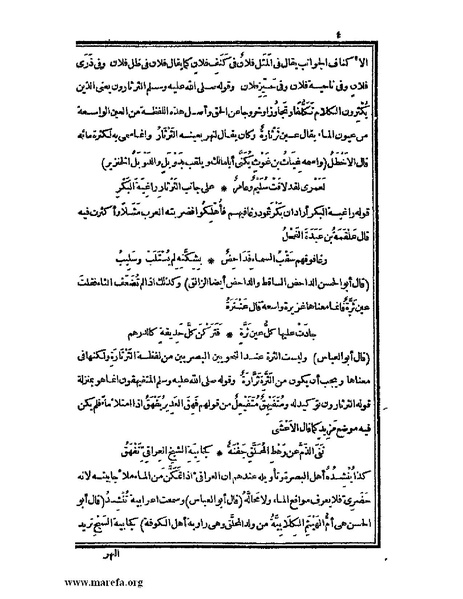 ٤
الأكناف الجوانب يقال في المثل فلان في كنف فلان كما يقال فلان في ظل فلان وفي ذرى
فلان وفي ناحية فلان وفي حيز فلان وقوله صلى الله عليه وسلم الثرثارون يعني الذين
يكثرون الكلام تكلفا وتجاوزا وخروجا عن الحق وأصل هذه اللفظة من العين الواسعة
من عيون الماء يقال عين ثرثارة وكان يقال لنهر بعينه الثرثار وإنما سمي به لكثرة مائه
قال الأخطل (واسمه غياث بن غوث يكنى أبا مالك ويلقب بدوبل والدوبل الخنزير)
لعمري لقد لاقت سليم وعامر * على جانب الثرثار راغية البكر
قوله راغية البكر أراد أن بكر ثمود رغا فيهم فأهلكوا فضربته العرب مثلا وأكثرت فيه
قال علقمة بن عبدة الفحل
رغا فوقهم سقب السماء فداحض * بشكته لم يستلب وسليب
(قال أبو الحسن الداحض الساقط والداحض أيضا الزالق) وكذلك اذا لم تضعف الثاء فقلت
عين ثرة فإنما معناها غزيرة واسعة قال عنترة
جادت عليها كل عين ثرة * فتركن كل حديقة كالدرهم
(قال أبو العباس) وليست الثرة عند النحويين البصريين من لفظة الثرثارة ولكنها في
معناها ويجب أن يكون من الثرة ثرارة وقوله صلى الله عليه وسلم المتفيهقون إنما هو بمنزلة
قوله الثرثارون توكيد له ومتفيهق متفيعل من قولهم فهق الغدير يفهق إذا امتلأ ماء فلم يكن
فيه موضع مزيد كما قال الأعشى
نفى الذم عن رهط المحلق جفنة * كجابية الشيخ العراقي تفهق
كذا ينشده أهل البصرة وتأويله عندهم ان العراقي اذا تمكن من الماء ملأ جابيته لأنه
حضري فلا يعرف مواقع الماء ولا محاله (قال أبو العباس) وسمعت اعرابية تنشد (قال أبو
الحسن هي أم الهيثم الكلابية من ولد المحلق وهي راوية أهل الكوفة) كجابية السيح تريد
النهر
www.marefa.org